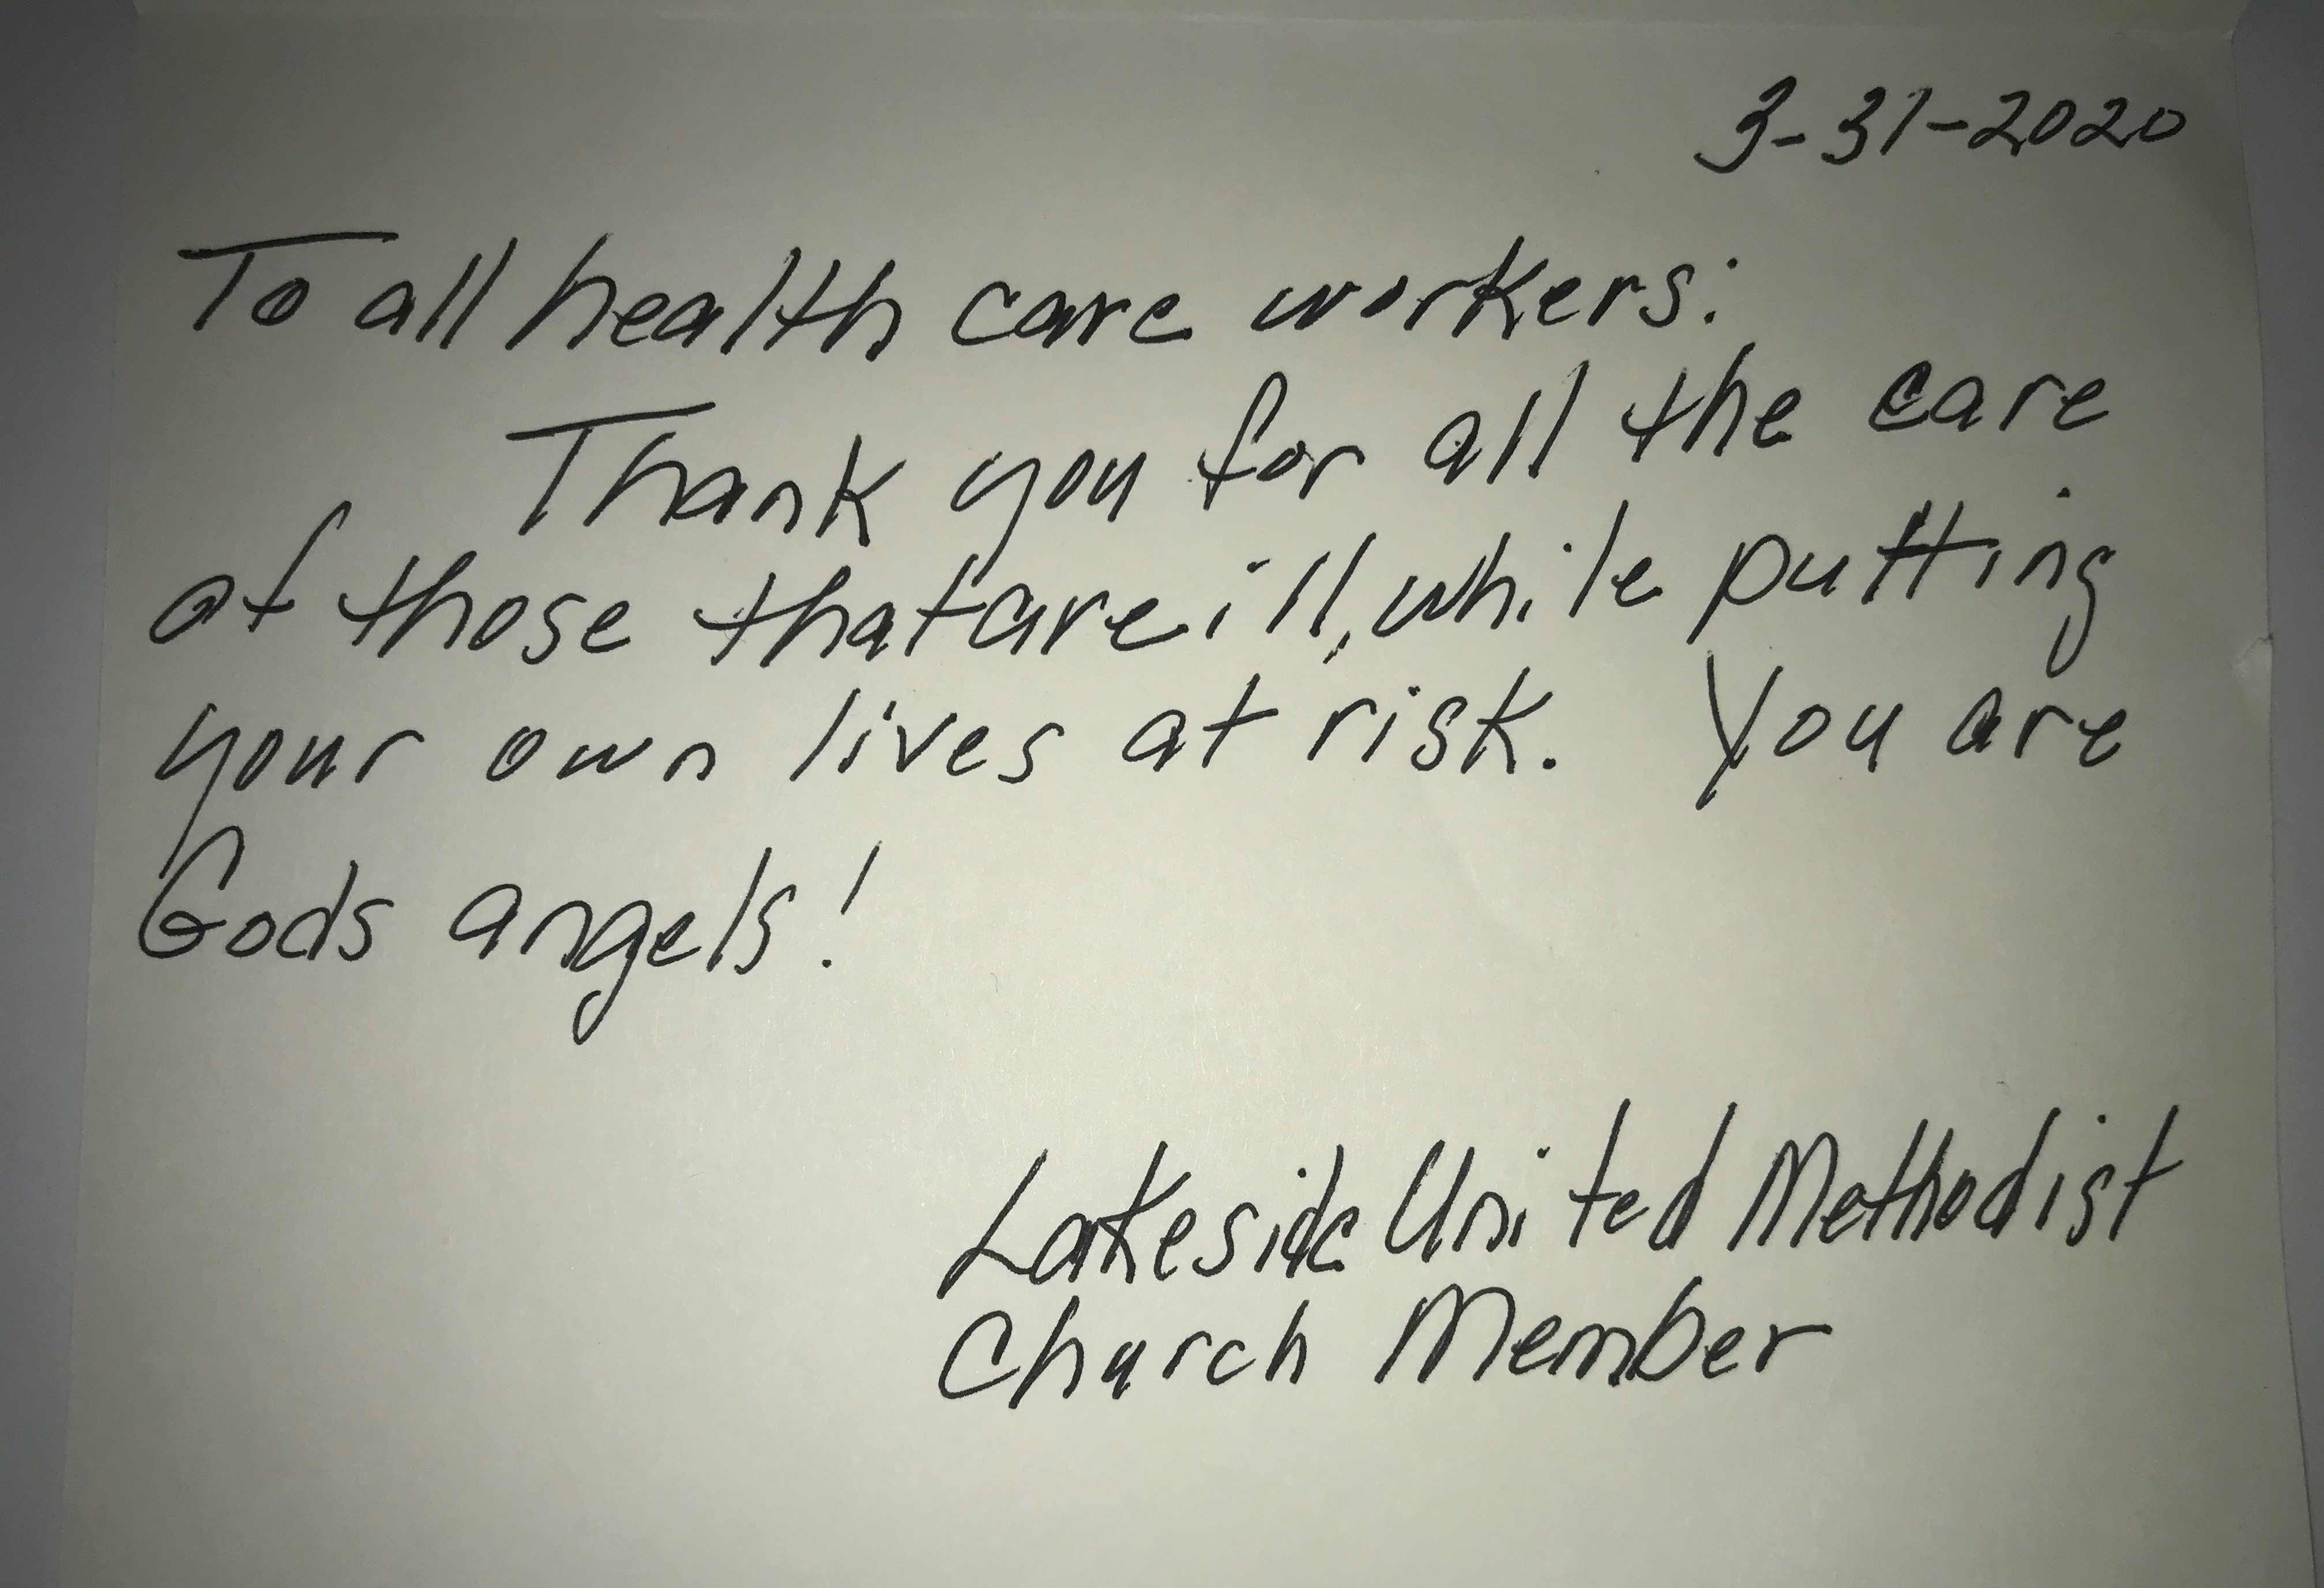 3-31-2020
To all health care workers:
Thank you for all the care
of those that are ill, while putting
your own lives at risk. You are
Gods angels!
Lakeside United Methodist
Church Member